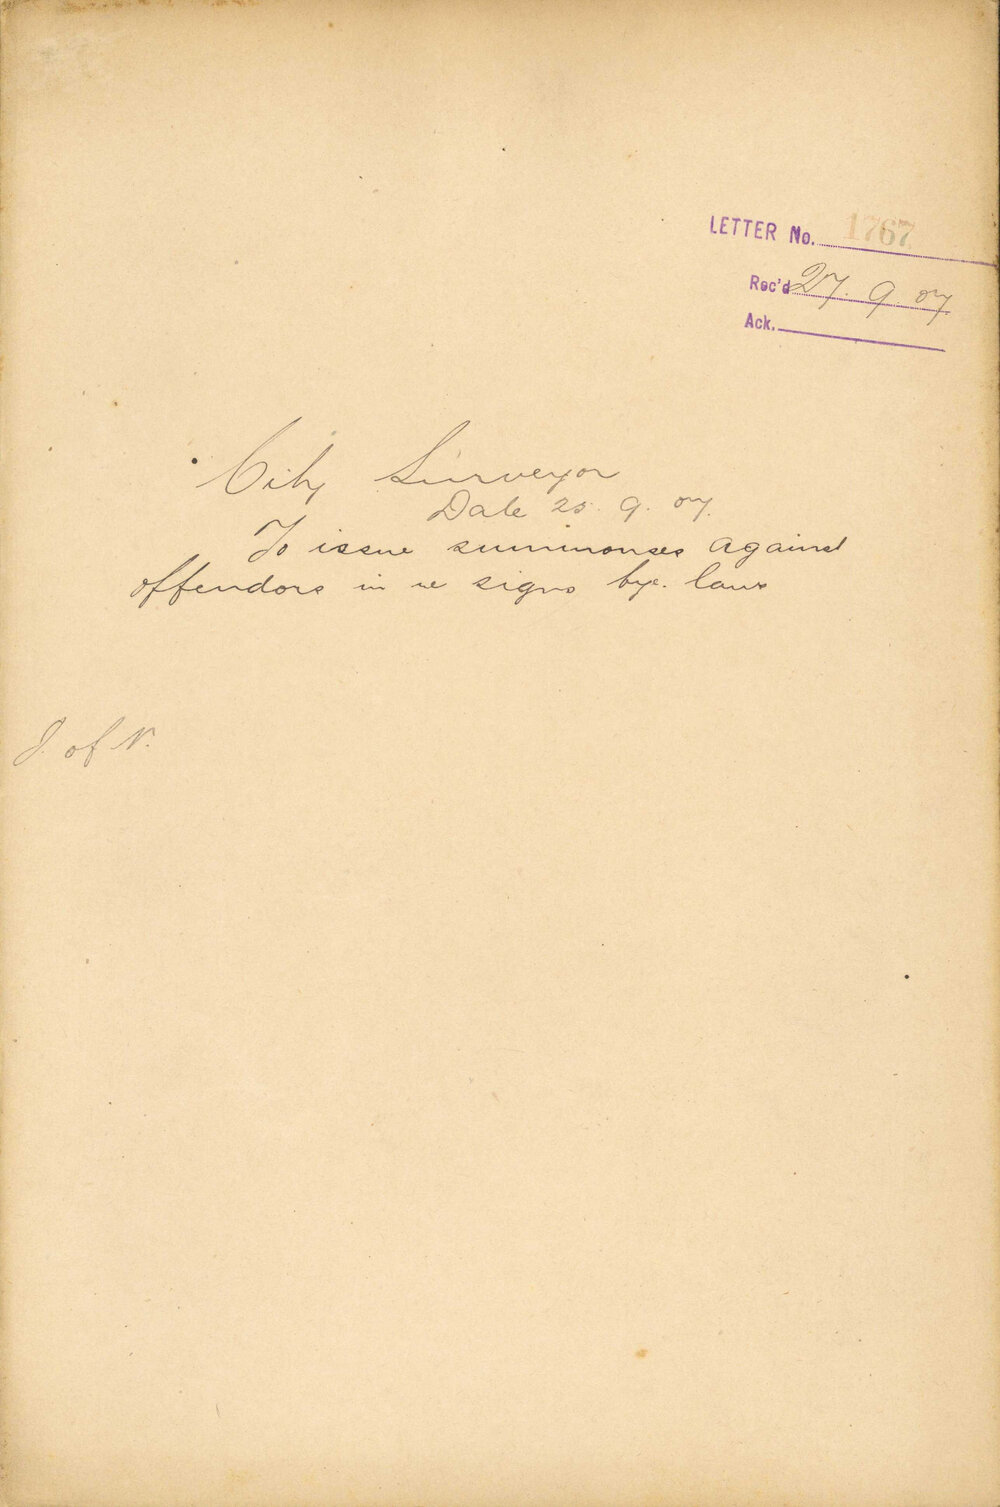 LETTER No. 1767
Rec'd 27. 9. 07
Ack.
City Surveyor
Date 25. 9. 07.
To issue summonses against
offendors in re signs bye. laws
J. of N.